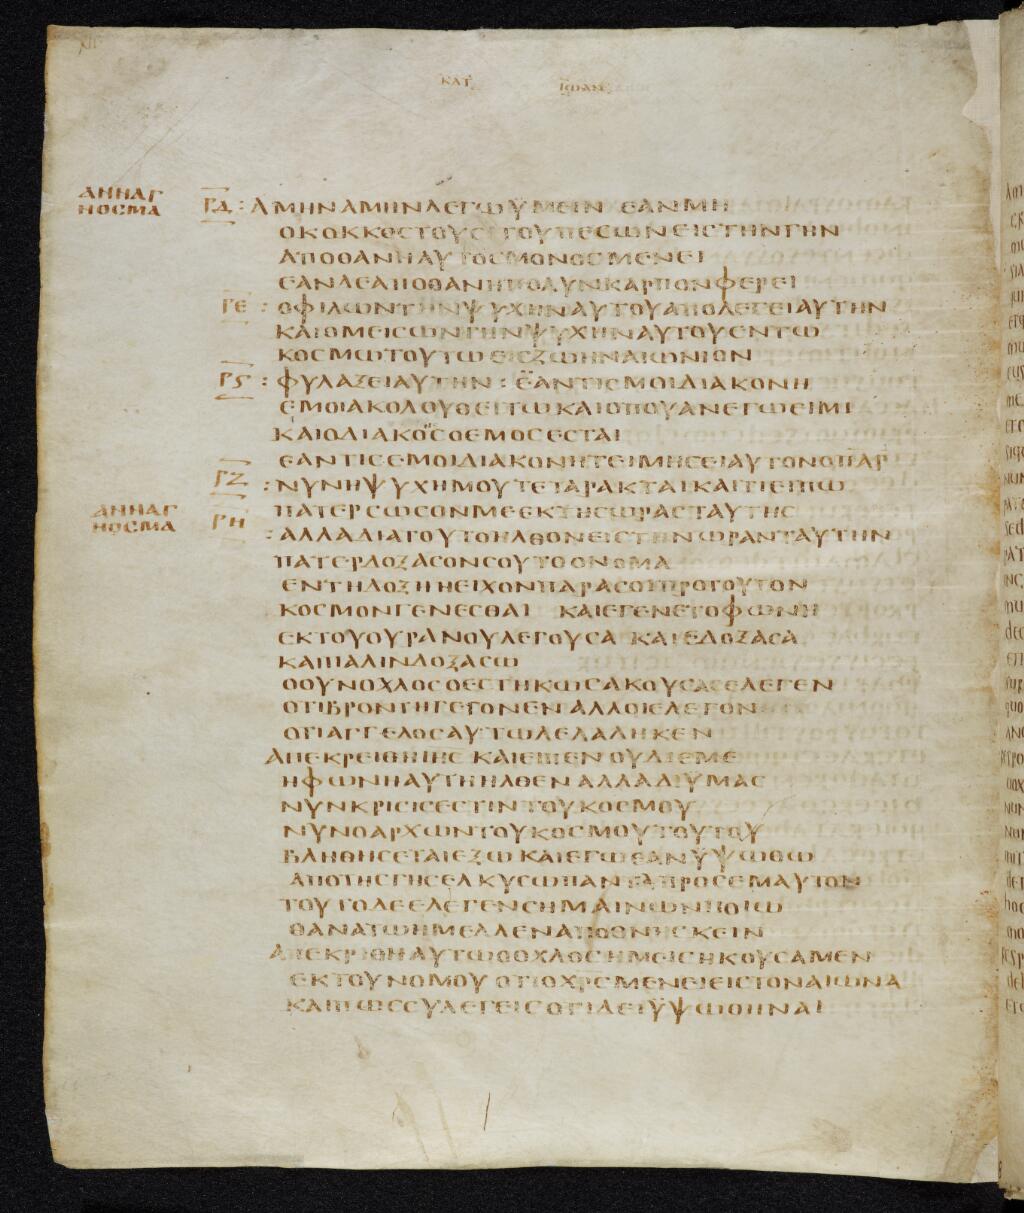 ΚΑΤ ΙΩΑΝ
ΑΝΝΑΓ
ΝΟΣΜΑ
ΡΔ : ΑΜΗΝΑΜΗΝΛΕΓΩΥΜΕΙΝ ΕΑΝΜΗ
ΟΚΟΚΚΟΣΤΟΥΣΙΤΟΥΠΕΣΩΝΕΙΣΤΗΝΓΗΝ
ΑΠΟΘΑΝΗΑΥΤΟΣΜΟΝΟΣΜΕΝΕΙ
ΕΑΝΔΕΑΠΟΘΑΝΗΠΟΛΥΝΚΑΡΠΟΝΦΕΡΕΙ
ΡΕ : ΟΦΙΛΩΝΤΗΝΨΥΧΗΝΑΥΤΟΥΑΠΟΛΕΣΕΙΑΥΤΗΝ
ΚΑΙΟΜΕΙΣΩΝΤΗΝΨΥΧΗΝΑΥΤΟΥΕΝΤΩ
ΚΟΣΜΩΤΟΥΤΩΕΙΣΖΩΗΝΑΙΩΝΙΟΝ
ΡϚ : ΦΥΛΑΞΕΙΑΥΤΗΝ : ΕΑΝΤΙΣΜΟΙΔΙΑΚΟΝΗ
ΕΜΟΙΑΚΟΛΟΥΘΕΙΤΩΚΑΙΟΠΟΥΑΝΕΓΩΕΙΜΙ
ΚΑΙΟΔΙΑΚΟΣΟΕΜΟΣΕΣΤΑΙ
ΕΑΝΤΙΣΕΜΟΙΔΙΑΚΟΝΗΤΕΙΜΗΣΕΙΑΥΤΟΝΟΠΑΡ
ΡΖ : ΝΥΝΗΨΥΧΗΜΟΥΤΕΤΑΡΑΚΤΑΙΚΑΙΤΙΕΙΠΩ
ΑΝΝΑΓ
ΝΟΣΜΑ
ΠΑΤΕΡΣΩΣΟΝΜΕΕΚΤΗΣΩΡΑΣΤΑΥΤΗΣ
ΡΗ : ΑΛΛΑΔΙΑΤΟΥΤΟΗΛΘΟΝΕΙΣΤΗΝΩΡΑΝΤΑΥΤΗΝ
ΠΑΤΕΡΔΟΞΑΣΟΝΣΟΥΤΟΟΝΟΜΑ
ΕΝΤΗΔΟΞΗΗΕΙΧΟΝΠΑΡΑΣΟΙΠΡΟΤΟΥΤΟΝ
ΚΟΣΜΟΝΓΕΝΕΣΘΑΙ ΚΑΙΕΓΕΝΕΤΟΦΩΝΗ
ΕΚΤΟΥΟΥΡΑΝΟΥΛΕΓΟΥΣΑ ΚΑΙΕΔΟΞΑΣΑ
ΚΑΙΠΑΛΙΝΔΟΞΑΣΩ
ΟΟΥΝΟΧΛΟΣΟΕΣΤΗΚΩΣΑΚΟΥΣΑΣΕΛΕΓΕΝ
ΟΤΙΒΡΟΝΤΗΓΕΓΟΝΕΝΑΛΛΟΙΕΛΕΓΟΝ
ΟΤΙΑΓΓΕΛΟΣΑΥΤΩΛΕΛΑΛΗΚΕΝ
ΑΠΕΚΡΕΙΘΗΙΗΣ ΚΑΙΕΙΠΕΝΟΥΔΙΕΜΕ
ΗΦΩΝΗΑΥΤΗΗΛΘΕΝΑΛΛΑΔΙΥΜΑΣ
ΝΥΝΚΡΙΣΙΣΕΣΤΙΝΤΟΥΚΟΣΜΟΥ
ΝΥΝΟΑΡΧΩΝΤΟΥΚΟΣΜΟΥΤΟΥΤΟΥ
ΒΛΗΘΗΣΕΤΑΙΕΞΩ ΚΑΙΕΓΩΕΑΝΫΨΩΘΩ
ΑΠΟΤΗΣΓΗΣΕΛΚΥΣΩΠΑΝΤΑΠΡΟΣΕΜΑΥΤΟΝ
ΤΟΥΤΟΔΕΕΛΕΓΕΝΣΗΜΑΙΝΩΝΠΟΙΩ
ΘΑΝΑΤΩΗΜΕΛΛΕΝΑΠΟΘΝΗΣΚΕΙΝ
ΑΠΕΚΡΙΘΗΑΥΤΩΟΟΧΛΟΣΗΜΕΙΣΗΚΟΥΣΑΜΕΝ
ΕΚΤΟΥΝΟΜΟΥ ΟΤΙΟΧΡΣΜΕΝΕΙΕΙΣΤΟΝΑΙΩΝΑ
ΚΑΙΠΩΣΣΥΛΕΓΕΙΣΟΤΙΔΕΙΫΨΩΘΗΝΑΙ